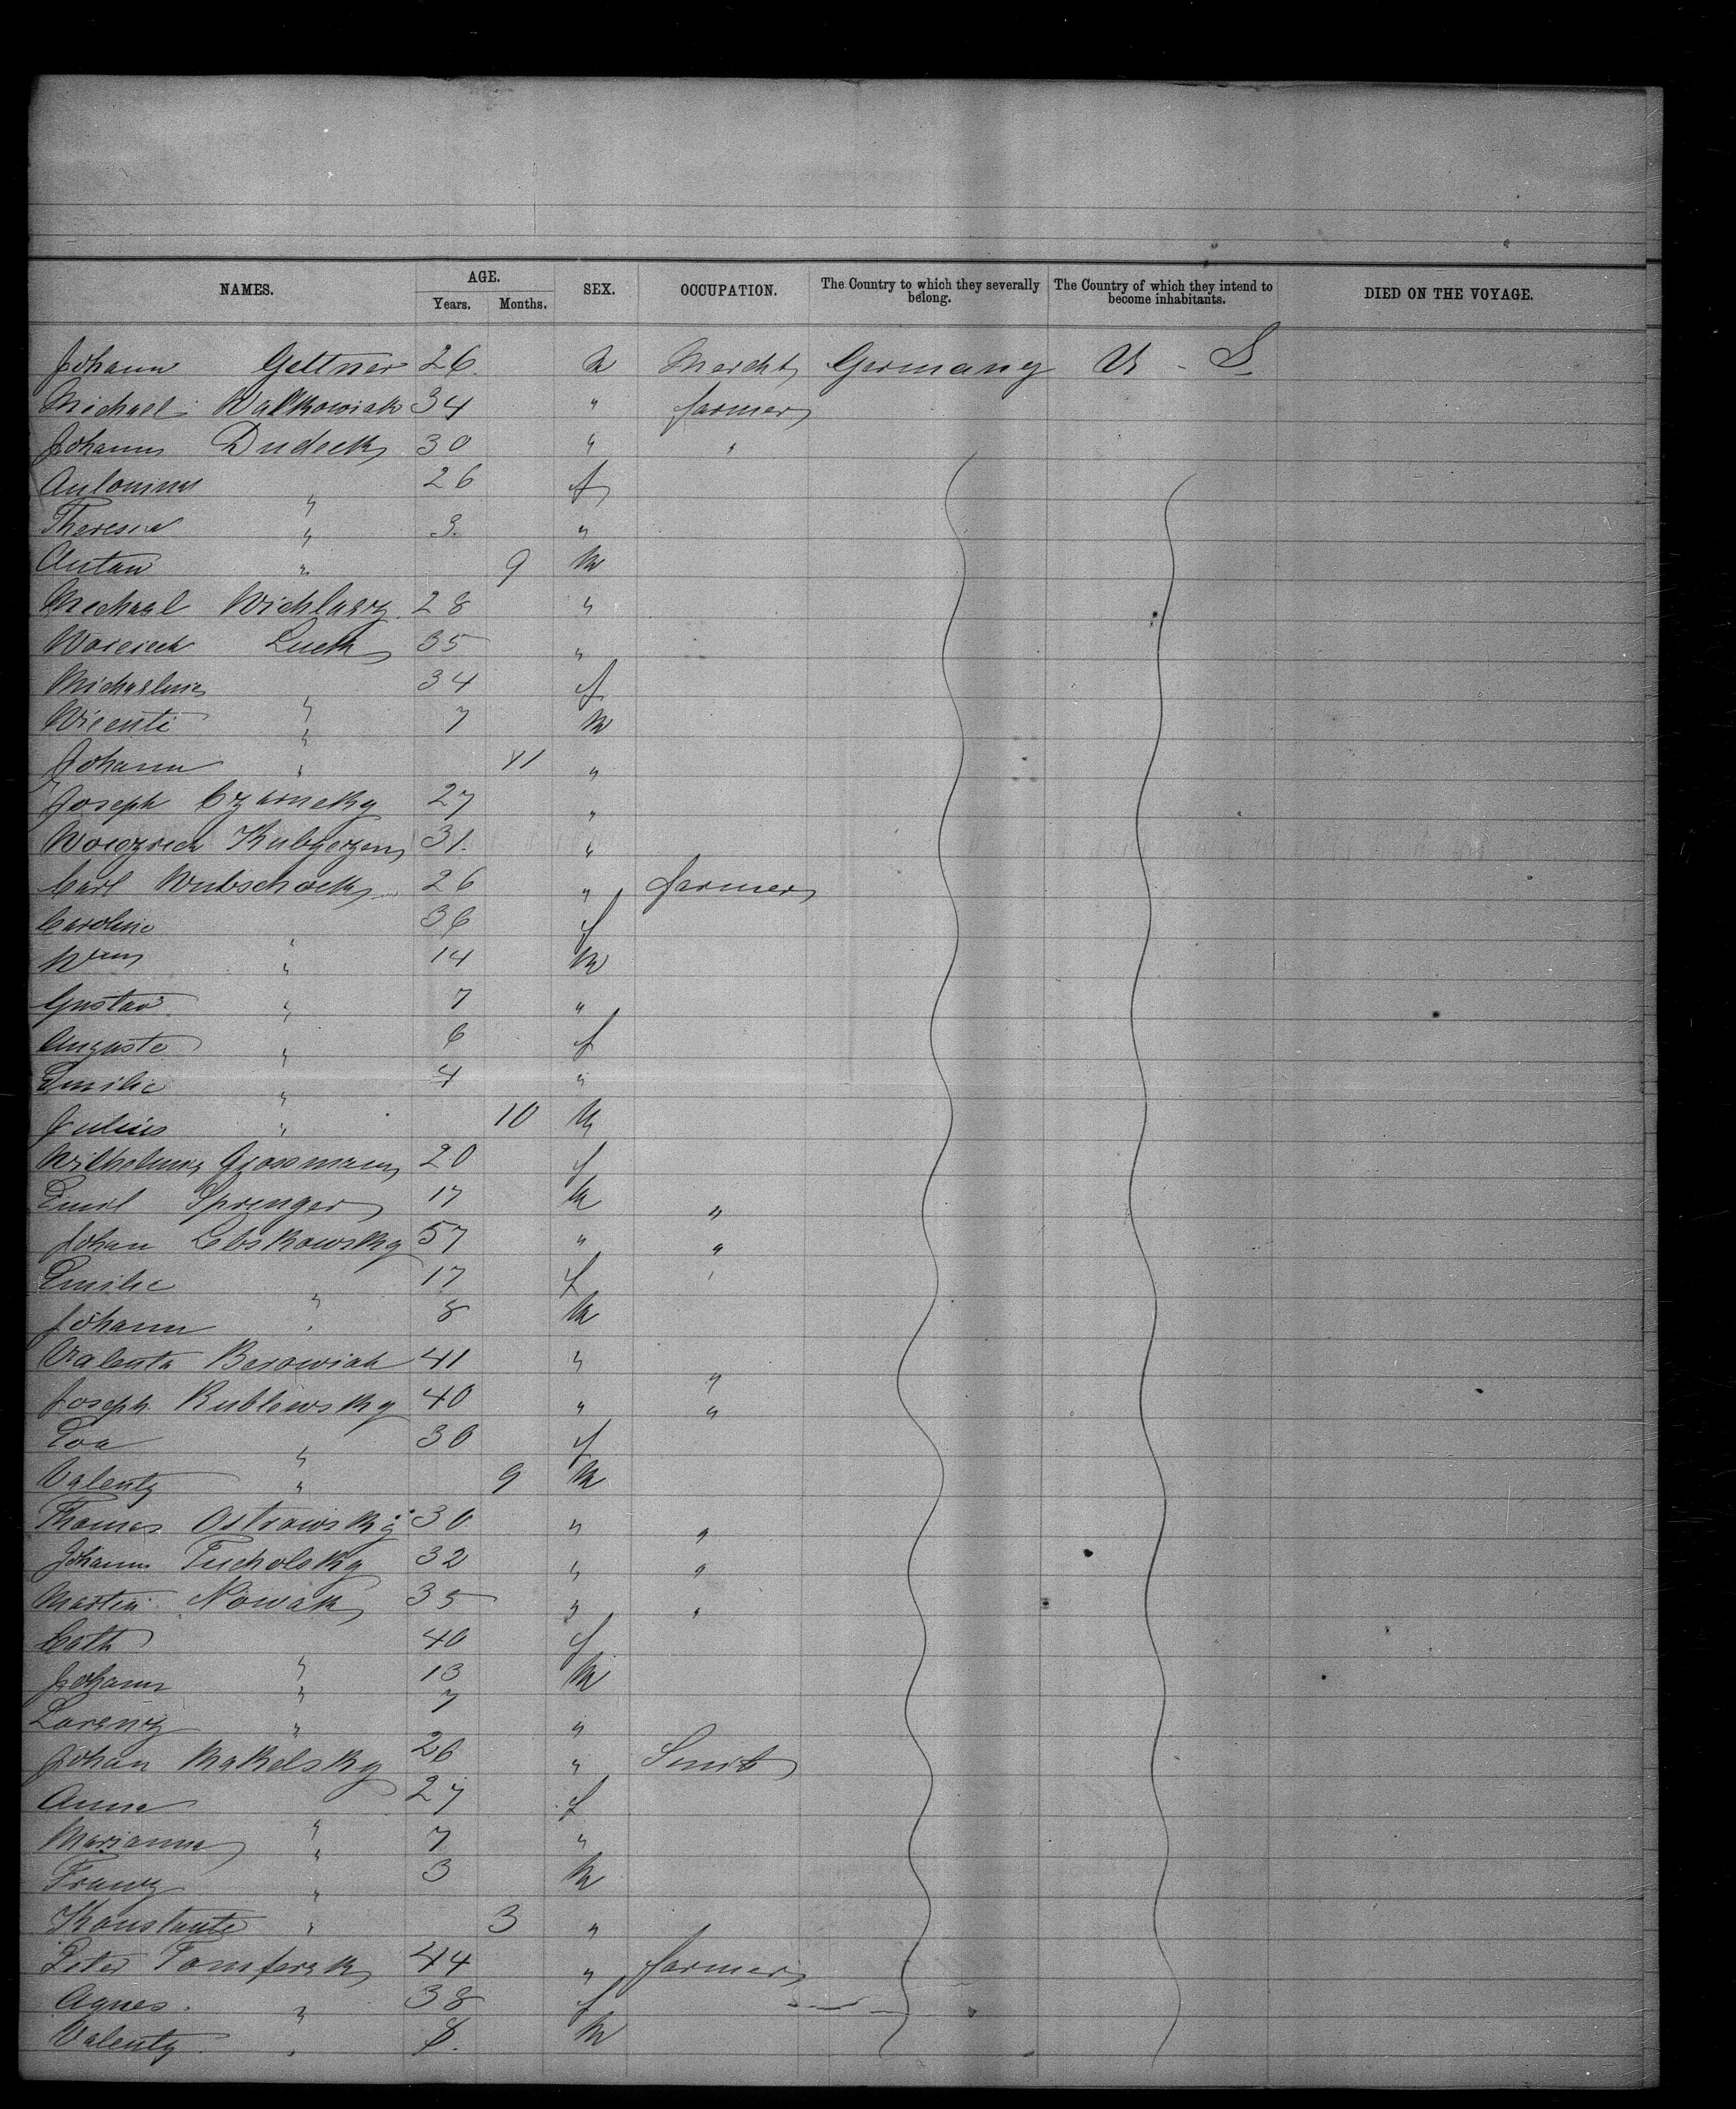 NAMES. AGE. SEX. OCCUPATION. The Country to which they severally belong. The Country of which they intend to become inhabitants. DIED ON THE VOYAGE.
Years. Months.
Johann Gettner 26 M Mercht Germany U - S
Michael Walkowiak 34 " farmer
Johann Dudeck 30 " "
Antonina " 26 f
Theresia " 3 "
Anton " 9 M
Michael Wichlasz 28 "
Woicieck Luck 35 "
Michaelina " 34 f
Vicenti " 7 M
Johann " 11 "
Joseph Czarneky 27 "
31 "
Carl Wubschack 26 " farmer
Caroline " 36 f
Wm " 14 M
Gustav " 7 "
Auguste " 6 f
Emilie " 4 "
Julius " 10 M
Wilhelmine Grossmann 20 f
Emil Sprenger 17 M "
Johan Lebskowsky 57 " "
Emilie " 17 f '
Johann " 8 M
Valenta Berowiak 41 " "
Joseph Kublewsky 40 " "
Eva " 30 f
Valenty " 9 M
Thomas Ostrowsky 30 " "
Johann Tucholsky 32 " "
Martin Nowak 35 " "
Cath " 40 f
Johann " 13 M
Lorenz " 7 "
Johan Makelsky 26 " Smith
Anna " 27 f
Marianna " 7 "
Franz " 3 M
Konstante " 3 "
Peter 44 " farmer
Agnes " 38 f
Valenty " 8 M